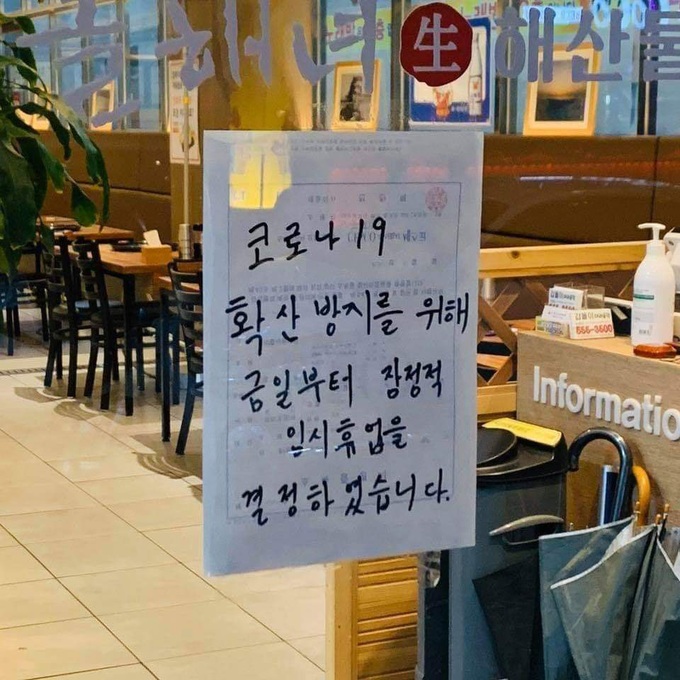 生 해산물
코로나19
확산 방지를 위해
금일부터 잠정적
임시휴업을
결정하였습니다.
556-3600
Information